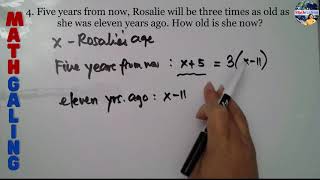 MATH GALING
4. Five years from now, Rosalie will be three times as old as
she was eleven years ago. How old is she now?
x – Rosalie's age
Five years from now : x+5 = 3(x-11)
eleven yrs. ago : x-11